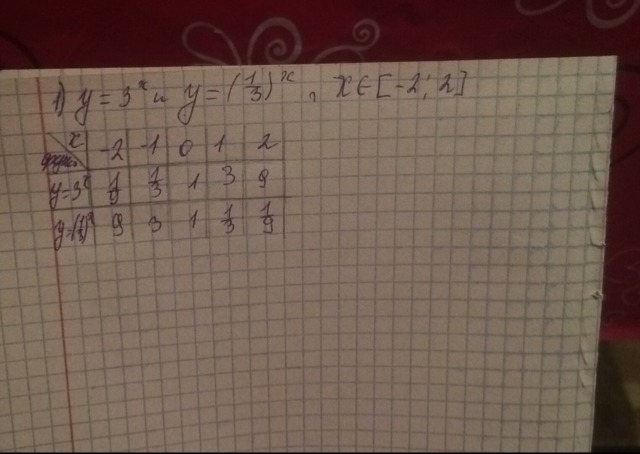 1) y = 3^x и y = (1/3)^x, x ∈ [-2; 2]
x -2 -1 0 1 2
y=3^x 1/9 1/3 1 3 9
y=(1/3)^x 9 3 1 1/3 1/9